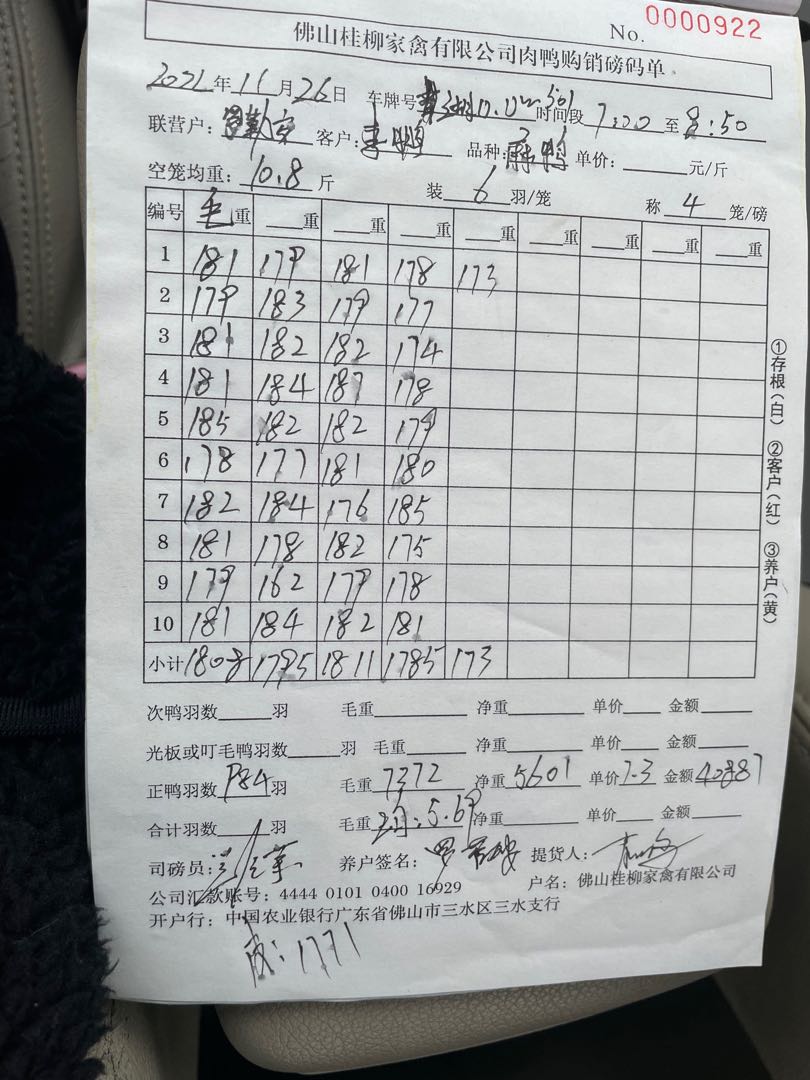 No. 0000922
佛山桂柳家禽有限公司肉鸭购销磅码单
2021年11月26日 车牌号 时间段 7:00 至 8:50
联营户: 客户: 品种: 麻鸭 单价: 元/斤
空笼均重: 10.8 斤 装 6 羽/笼 称 4 笼/磅
编号 毛重 重 重 重 重 重 重 重 重
1 181 179 181 178 173
2 179 183 179 177
3 181 182 182 174
4 181 184 187 178
5 185 182 182 179
6 178 177 181 180
7 182 184 176 185
8 181 178 182 175
9 179 162 179 178
10 181 184 182 181
小计 1808 1795 1811 1785 173
次鸭羽数 羽 毛重 净重 单价 金额
光板或叮毛鸭羽数 羽 毛重 净重 单价 金额
正鸭羽数 984 羽 毛重 7372 净重 5601 单价 7.3 金额 40887
合计羽数 羽 毛重 5.69 净重 单价 金额
司磅员: 养户签名: 提货人:
公司汇款账号: 4444 0101 0400 16929 户名: 佛山桂柳家禽有限公司
开户行: 中国农业银行广东省佛山市三水区三水支行
皮: 1771
①存根(白) ②客户(红) ③养户(黄)